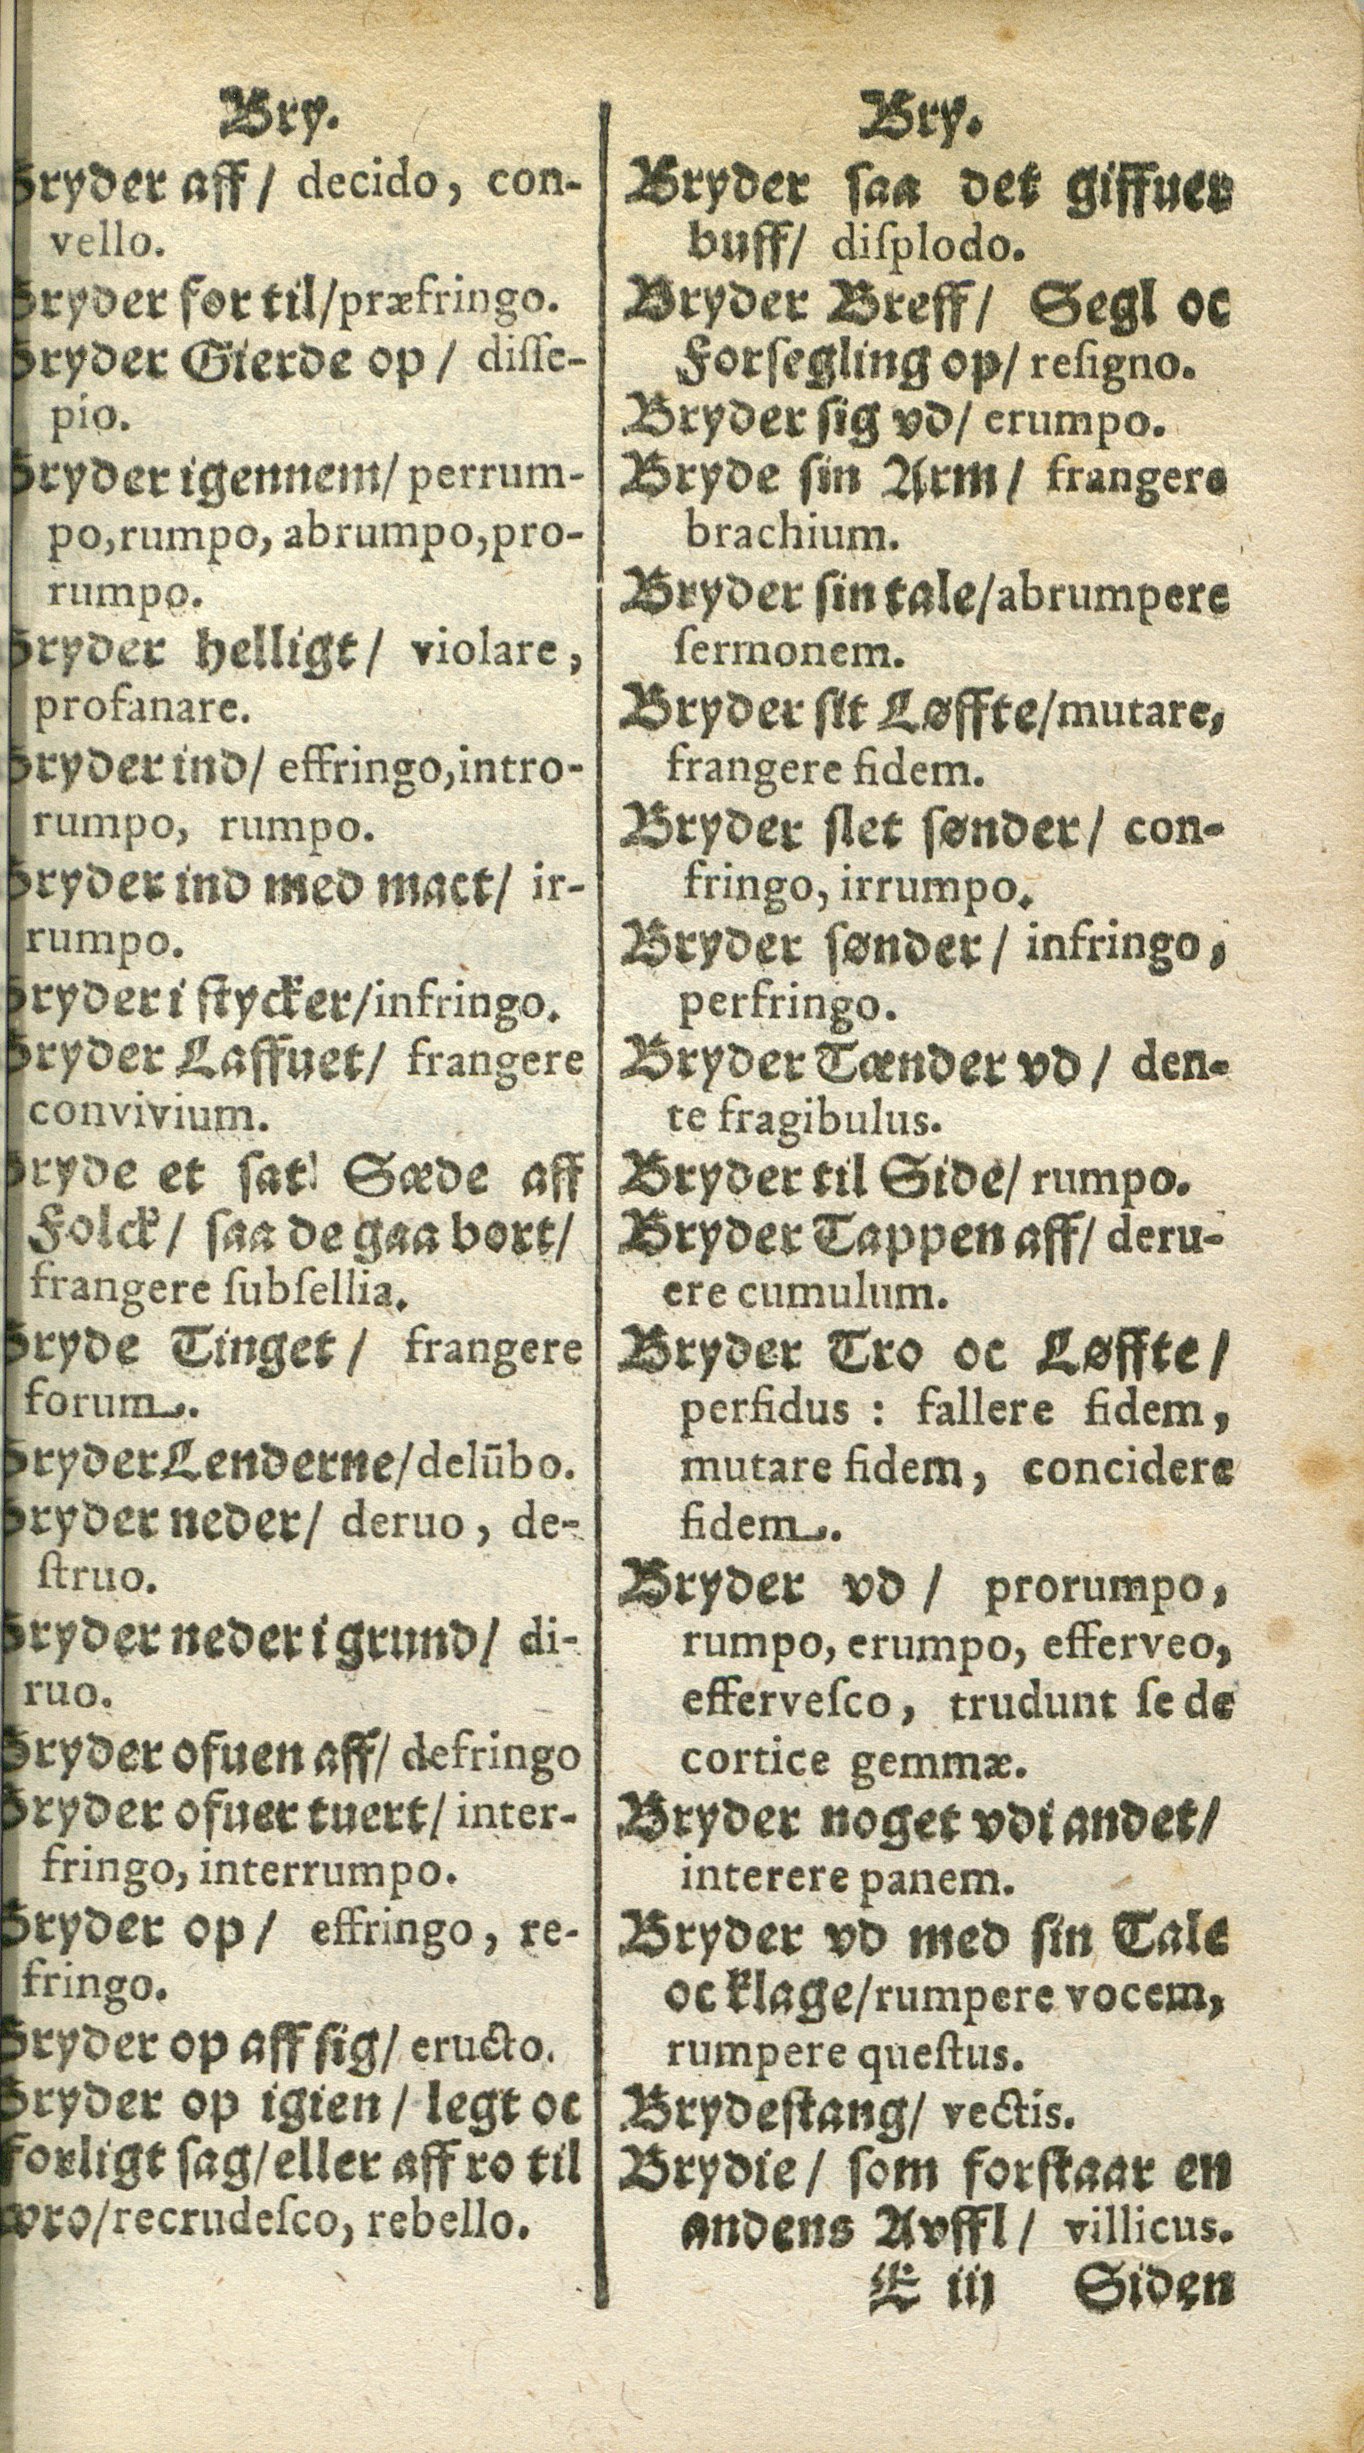 Bry.
Bryder aff/ decido, con-
vello.
Bryder for til/præfringo.
Bryder Gierde op/ diſſe-
pio.
Bryder igennem/ perrum-
po,rumpo, abrumpo,pro-
rumpo.
Bryder helligt/ violare,
profanare.
Bryder ind/ effringo,intro-
rumpo, rumpo.
Bryder ind med mact/ ir-
rumpo.
Bryder i ſtycker/infringo.
Bryder Laffuet/ frangere
convivium.
Bryde et ſat Sæde aff
Folck/ ſaa de gaa bort/
frangere ſubſellia.
Bryde Tinget/ frangere
forum.
Bryder Lenderne/delūbo.
Bryder neder/ deruo, de-
ſtruo.
Bryder neder i grund/ di-
ruo.
Bryder ofuen aff/ defringo
Bryder ofuer tuert/ inter-
fringo, interrumpo.
Bryder op/ effringo, re-
fringo.
Bryder op aff ſig/ eructo.
Bryder op igien/ legt oc
forligt ſag/eller aff ro til
vro/recrudeſco, rebello.
Bry.
Bryder ſaa det giffuer
buff/ diſplodo.
Bryder Breff/ Segl oc
Forſegling op/ reſigno.
Bryder ſig vd/ erumpo.
Bryde ſin Arm/ frangere
brachium.
Bryder ſin tale/abrumpere
ſermonem.
Bryder ſit Løffte/mutare,
frangere fidem.
Bryder ſlet ſønder/ con-
fringo, irrumpo.
Bryder ſønder/ infringo,
perfringo.
Bryder Tænder vd/ den-
te fragibulus.
Bryder til Side/ rumpo.
Bryder Tappen aff/ deru-
ere cumulum.
Bryder Tro oc Løffte/
perfidus : fallere fidem,
mutare fidem, concidere
fidem.
Bryder vd/ prorumpo,
rumpo, erumpo, efferveo,
efferveſco, trudunt ſe de
cortice gemmæ.
Bryder noget vdi andet/
interere panem.
Bryder vd med ſin Tale
oc klage/rumpere vocem,
rumpere queſtus.
Brydeſtang/ vectis.
Brydie/ ſom forſtaar en
andens Avffl/ villicus.
E iij Siden